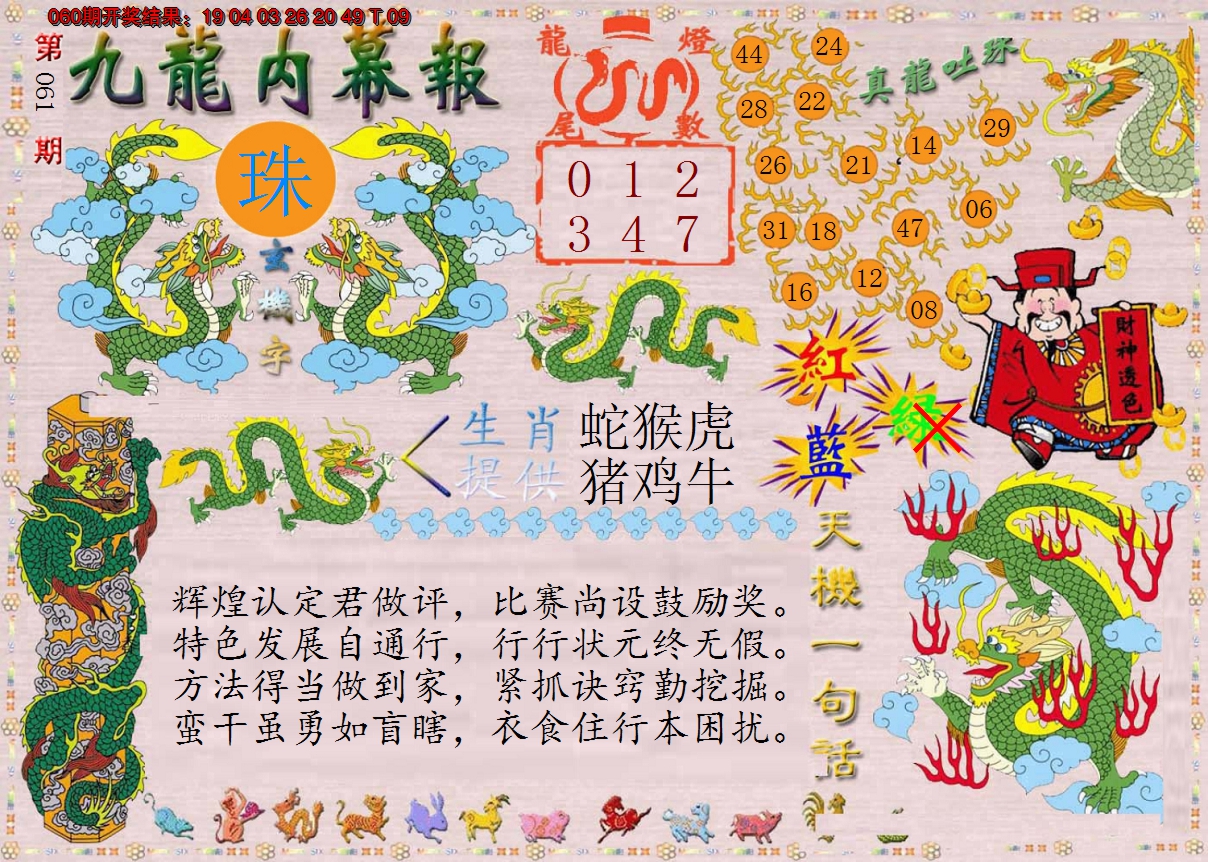 060期开奖结果：19 04 03 26 20 49 T 09
第061期
九龍内幕報
珠
玄機字
龍燈
尾數
0 1 2
3 4 7
真龍吐珠
44
24
28
22
29
14
26
21
06
31
18
47
12
16
08
財神透色
紅
綠
藍
生肖 蛇猴虎
提供 猪鸡牛
天機一句話
辉煌认定君做评，比赛尚设鼓励奖。
特色发展自通行，行行状元终无假。
方法得当做到家，紧抓诀窍勤挖掘。
蛮干虽勇如盲瞎，衣食住行本困扰。